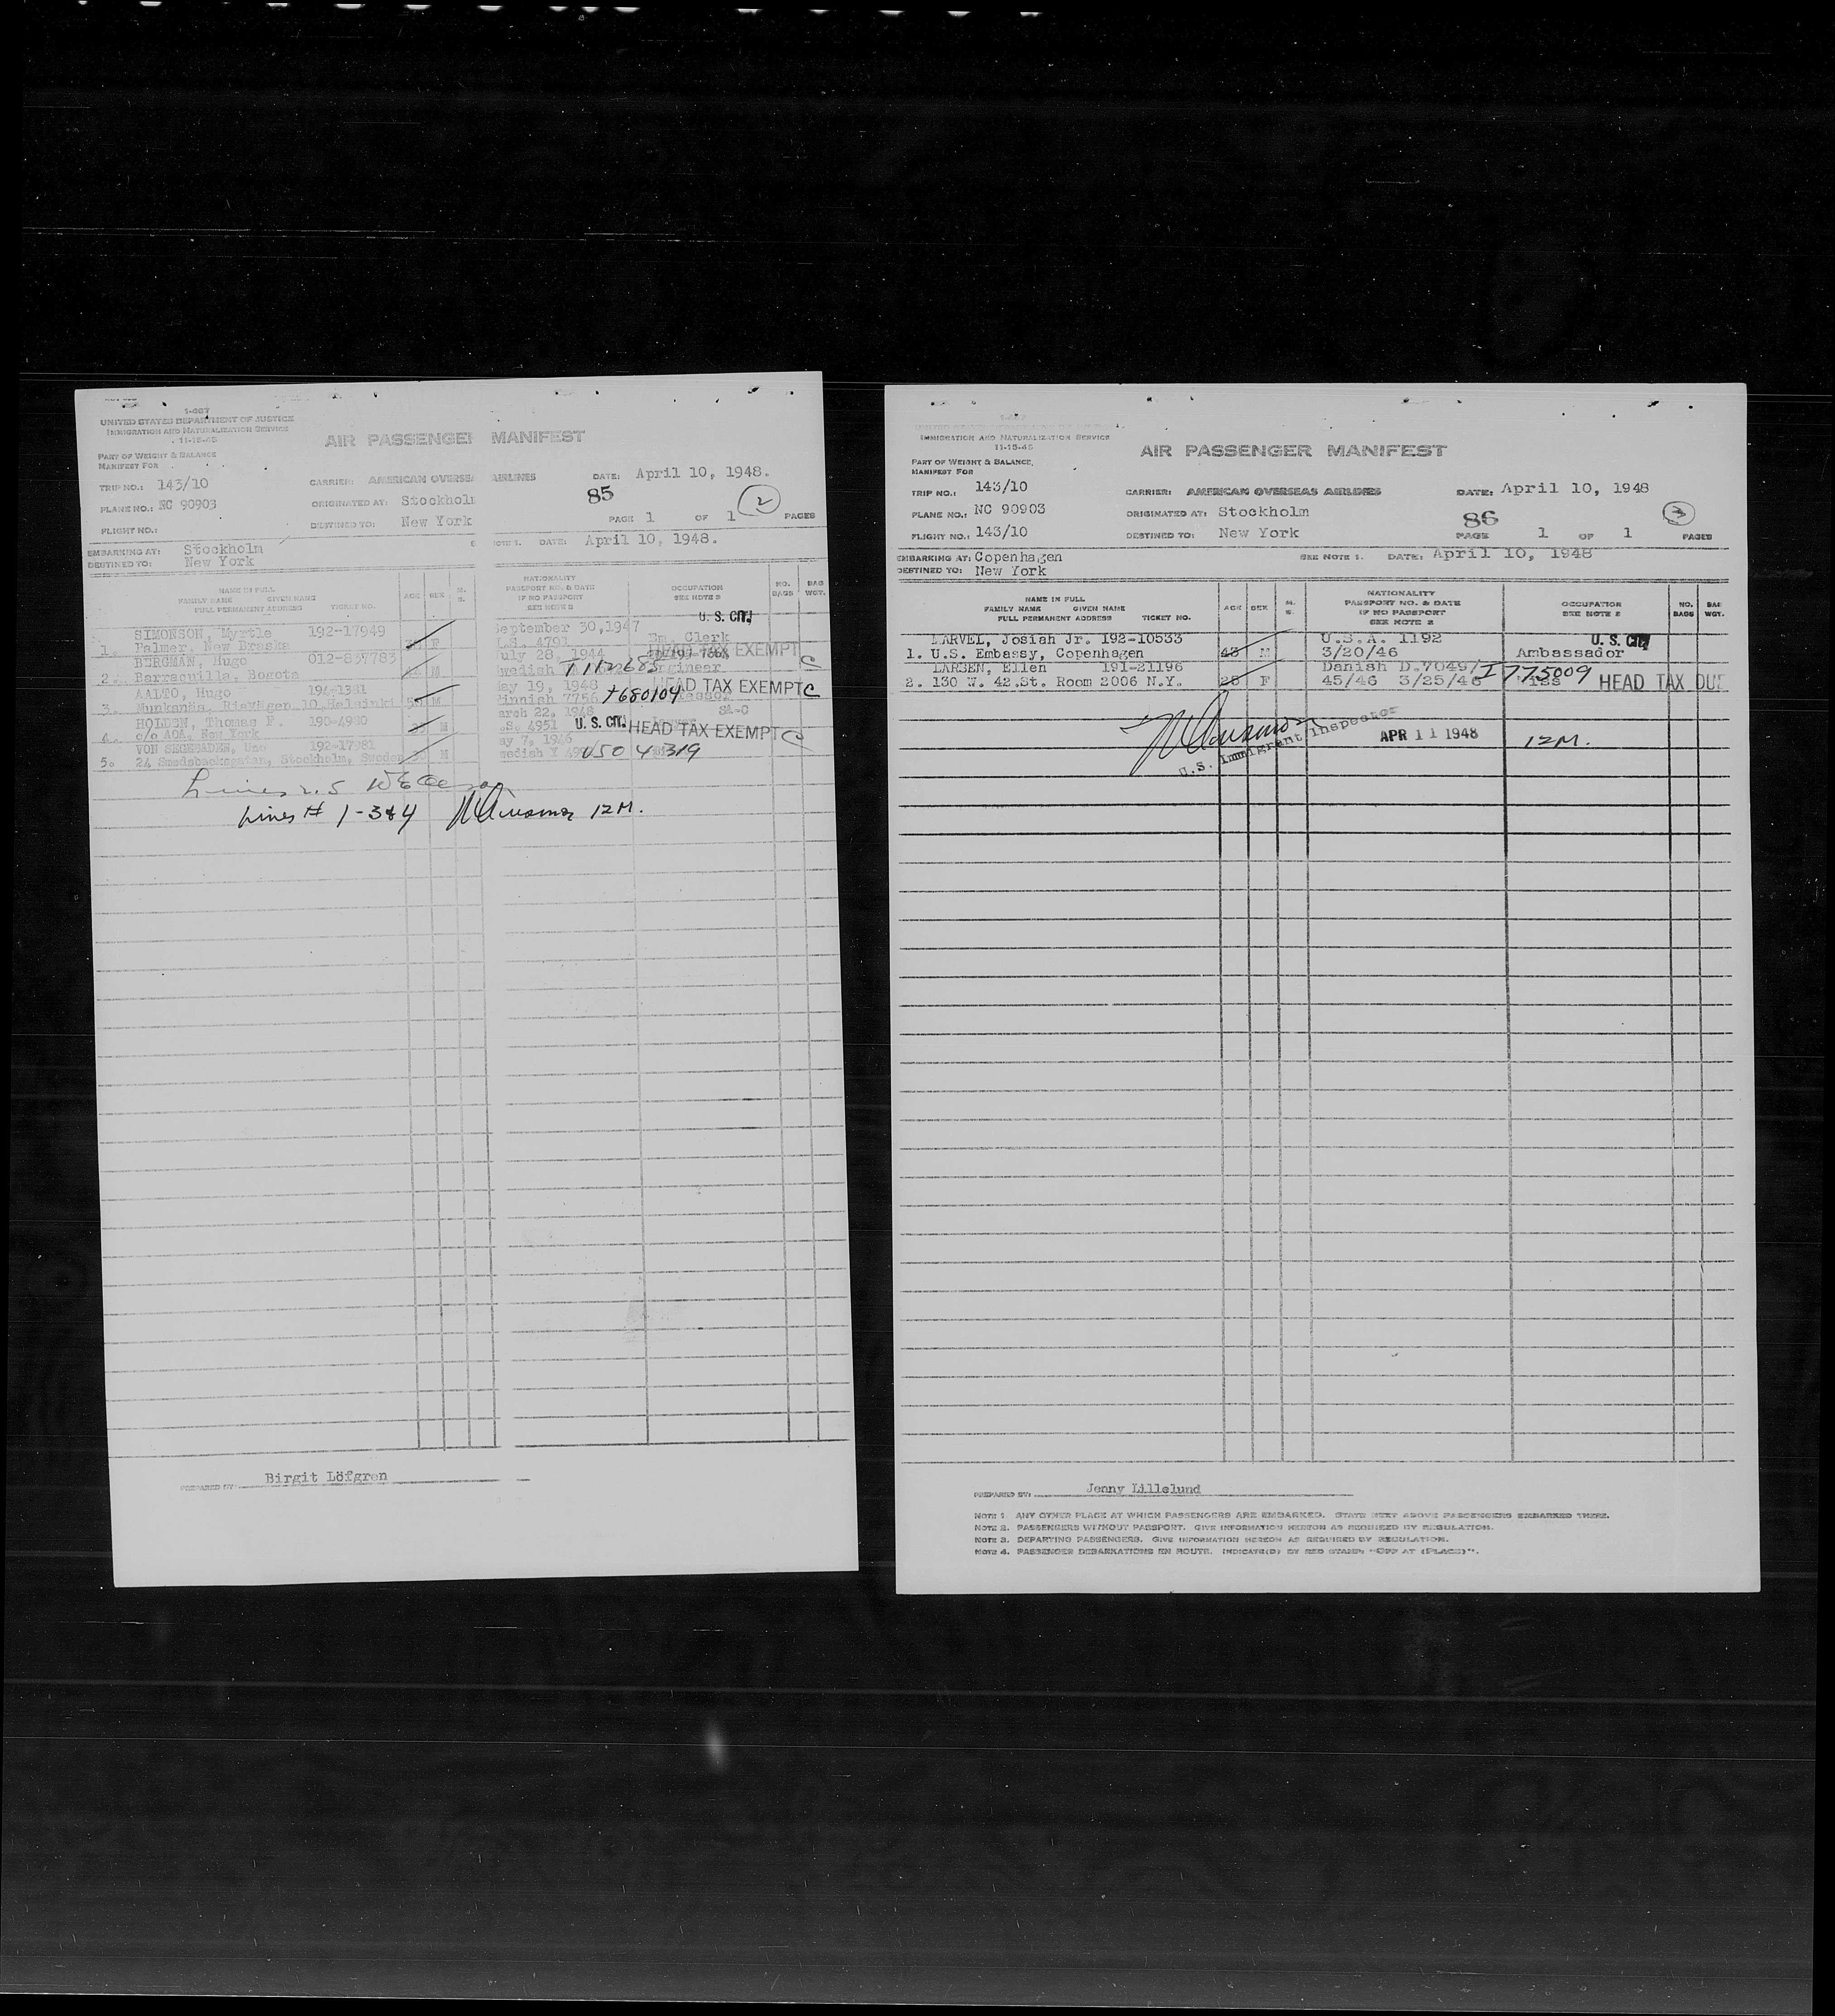 1-467
UNITED STATES DEPARTMENT OF JUSTICE
IMMIGRATION AND NATURALIZATION SERVICE
11-15-45
AIR PASSENGER MANIFEST
PART OF WEIGHT & BALANCE
MANIFEST FOR
TRIP NO.: 143/10 CARRIER: AMERICAN OVERSE AIRLINES DATE: April 10, 1948.
PLANE NO.: NC 90903 ORIGINATED AT: Stockhol 85 2
PAGE 1 OF 1 PAGES
FLIGHT NO.: DESTINED TO: New York
EMBARKING AT: Stockholm NOTE 1. DATE: April 10, 1948.
DESTINED TO: New York
NAME IN FULL AGE SEX M. S. NATIONALITY OCCUPATION NO. BAGS BAG WGT.
FAMILY NAME GIVEN NAME PASSPORT NO. & DATE SEE NOTE 2
FULL PERMANENT ADDRESS TICKET NO. IF NO PASSPORT
SEE NOTE 2
U. S. CIT.
SIMONSON, Myrtle 192-17949 September 30, 1947 Em. Clerk
1. Palmer, New Braska F .S. 4791
BERGMAN, Hugo 012-857783 July 28, 1944 HEAD TAX EXEMPT C
2. Barracuilla, Bogota M wedish T 1182685 Engineer
AALTO, Hugo 194-1381 ay 19, 1948 HEAD TAX EXEMPT C
3. Munkanäs, Risvägen 10, Helsinki M innish 7756 680109
HOLDEN, Thomas F. 190-4980 arch 22, 1948
4. c/o AOA, New York M .S. 4951 U. S. CIT. HEAD TAX EXEMPT C
VON SEGEBADEN, Uno 192-17981 ay 7, 1946
5. 24 Smedsbacksgatan, Stockholm, Sweden M wedish
Lines 2. 5
Lines # 1-3&4 12M.
PREPARED BY: Birgit Löfgren
IMMIGRATION AND NATURALIZATION SERVICE
11-15-45
AIR PASSENGER MANIFEST
PART OF WEIGHT & BALANCE,
MANIFEST FOR
TRIP NO.: 143/10 CARRIER: AMERICAN OVERSEAS AIRLINES DATE: April 10, 1948
PLANE NO.: NC 90903 ORIGINATED AT: Stockholm 86 3
FLIGHT NO.: 143/10 DESTINED TO: New York PAGE 1 OF 1 PAGES
EMBARKING AT: Copenhagen SEE NOTE 1. DATE: April 10, 1948
DESTINED TO: New York
NAME IN FULL AGE SEX M. S. NATIONALITY OCCUPATION NO. BAGS BAG WGT.
FAMILY NAME GIVEN NAME PASSPORT NO. & DATE SEE NOTE 2
FULL PERMANENT ADDRESS TICKET NO. IF NO PASSPORT
SEE NOTE 2
MARVEL, Josiah Jr. 192-10533 U.S.A. 1192 U. S. CIT.
1. U.S. Embassy, Copenhagen 43 M 3/20/46 Ambassador
LARSEN, Ellen 191-21196 Danish D.7049/ I 775009
2. 130 W. 42.St. Room 2006 N.Y. 28 F 45/46 3/25/46 Miss HEAD TAX DUE
U.S. Immigrant Inspector APR 11 1948 12M.
PREPARED BY: Jenny Lillelund
NOTE 1 ANY OTHER PLACE AT WHICH PASSENGERS ARE EMBARKED. STATE NEXT ABOVE PASSENGERS EMBARKED THERE.
NOTE 2. PASSENGERS WITHOUT PASSPORT. GIVE INFORMATION HEREON AS REQUIRED BY REGULATION.
NOTE 3. DEPARTING PASSENGERS. GIVE INFORMATION HEREON AS REQUIRED BY REGULATION.
NOTE 4. PASSENGER DEBARKATIONS EN ROUTE. INDICATE(D) BY RED STAMP "OFF AT (PLACE)".